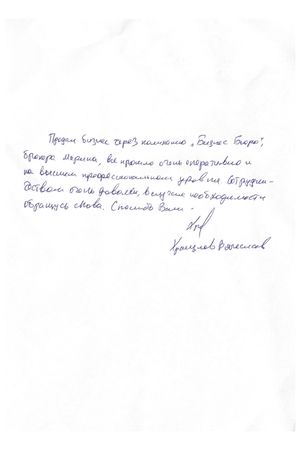 Продал бизнес через компанию „Бизнес Бюро",
брокера Марина, все прошло очень оперативно и
на высшем профессиональном уровне. Сотрудни-
чеством очень доволен, в случае необходимости
обращусь снова. Спасибо Вам.
Вячеслав